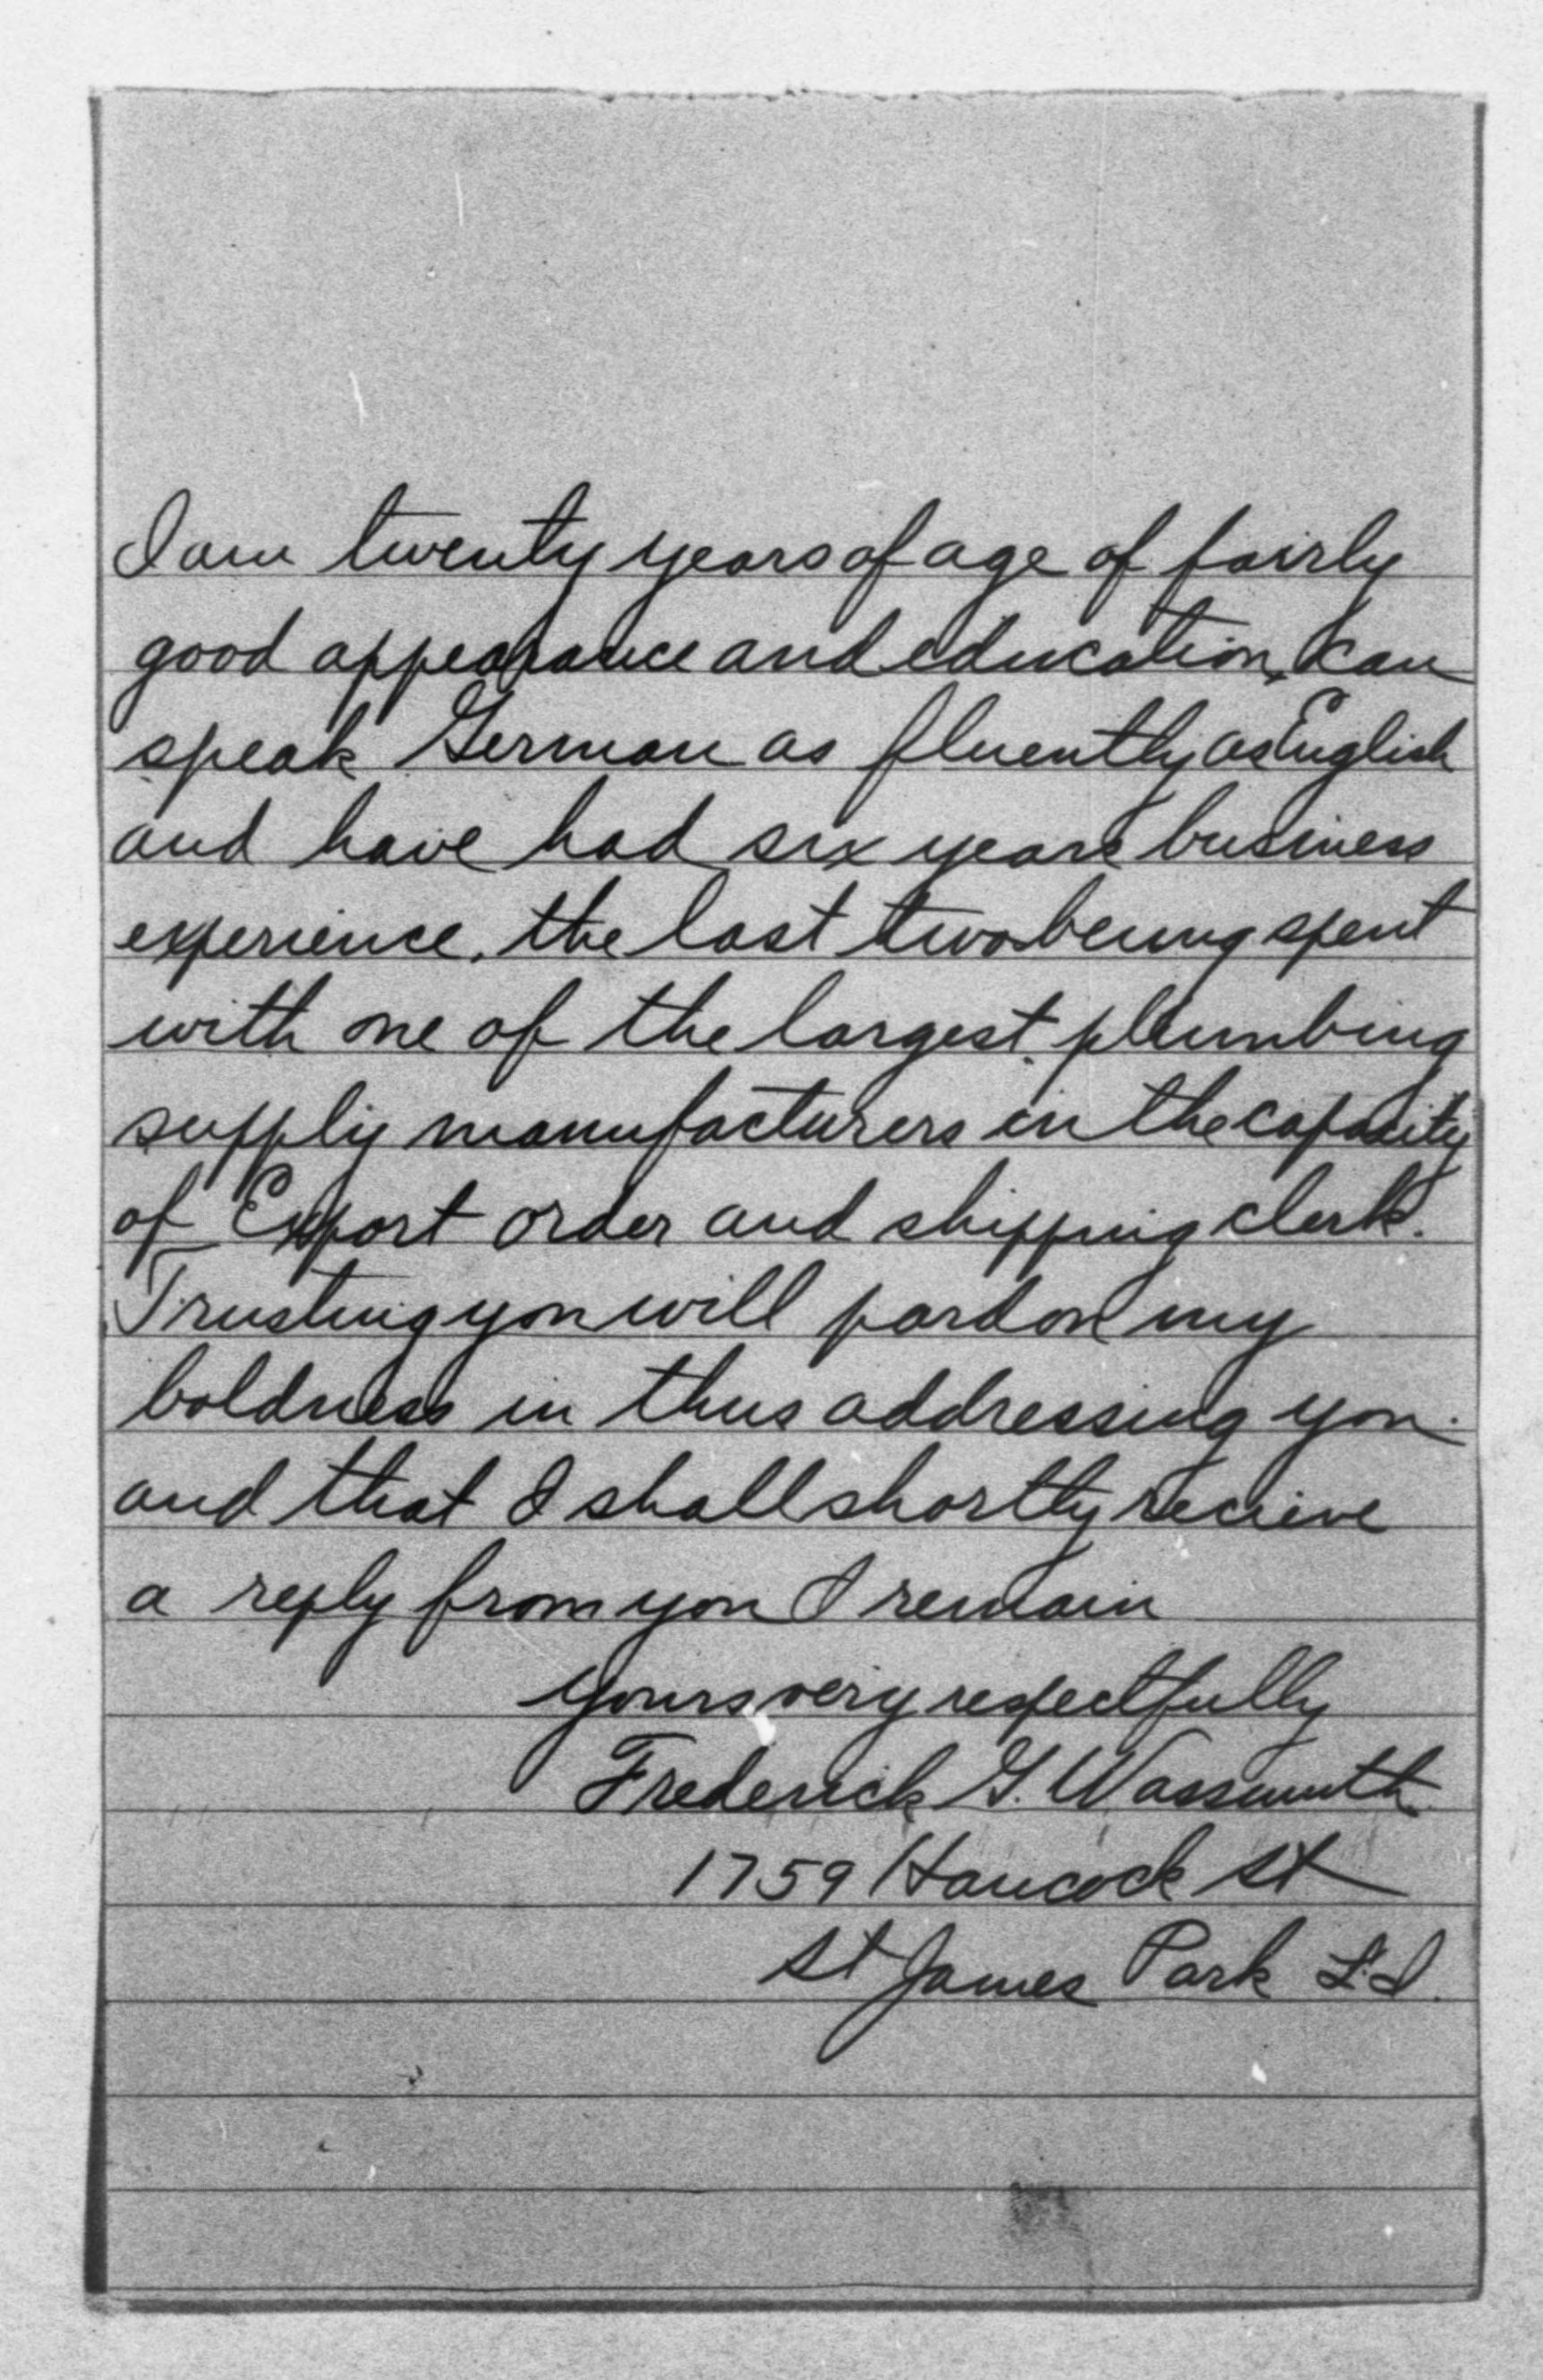 I am twenty years of age of fairly
good appearance and education, can
speak German as fluently as English
and have had six years business
experience, the last two being spent
with one of the largest plumbing
supply manufacturers in the capacity
of Export order and shipping clerk.
Trusting you will pardon my
boldness in thus addressing you
and that I shall shortly recieve
a reply from you I remain
yours very respectfully
Frederick G. Wassmuth
1759 Hancock St
St James Park L.I.